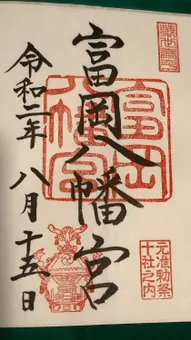 富岡八幡宮
令和二年 八月十五日
富岡八幡宮
元准勅祭
十社之内